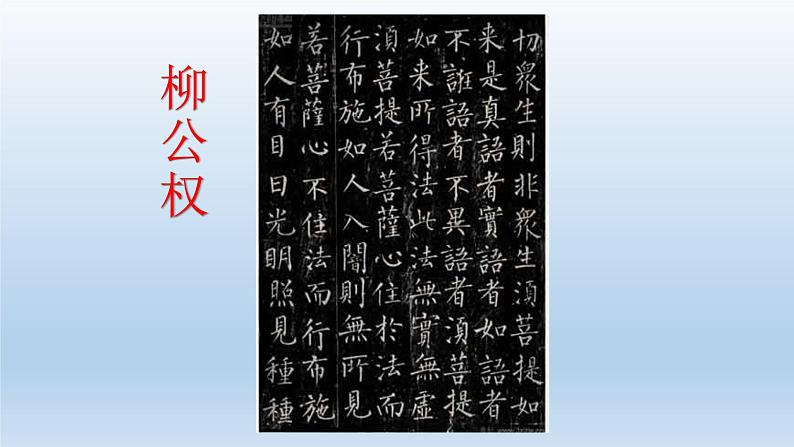 柳公权
切衆生則非衆生須菩提如
来是真語者實語者如語者
不誑語者不異語者須菩提
如来所得法此法無實無虛
須菩提若菩薩心住於法而
行布施如人入闇則無所見
若菩薩心不住法而行布施
如人有目日光明照見種種